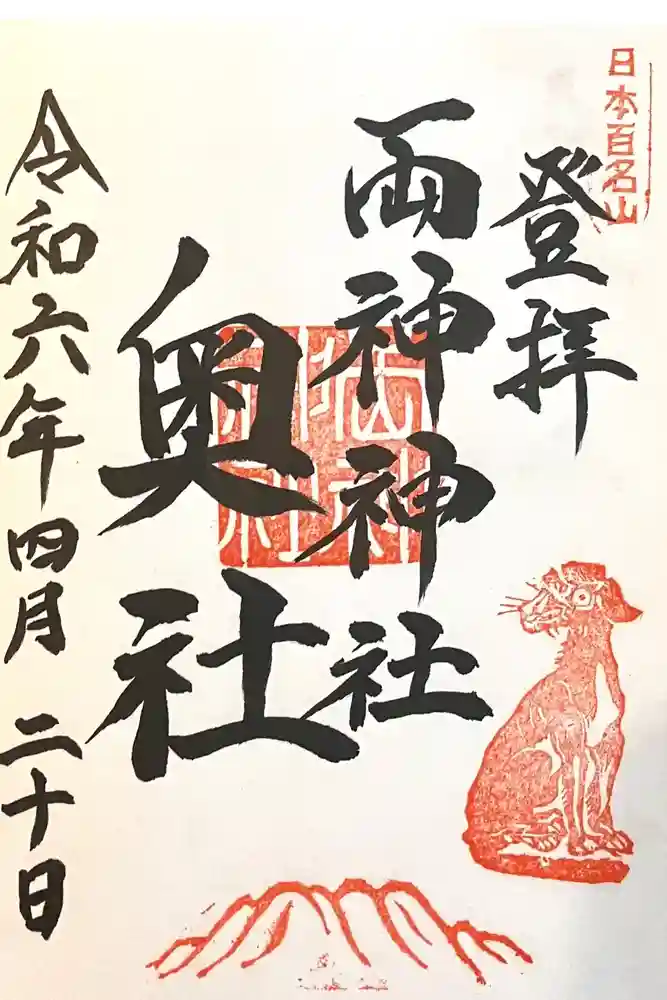 日本百名山
登拝
両神神社
奥社
令和六年四月二十日